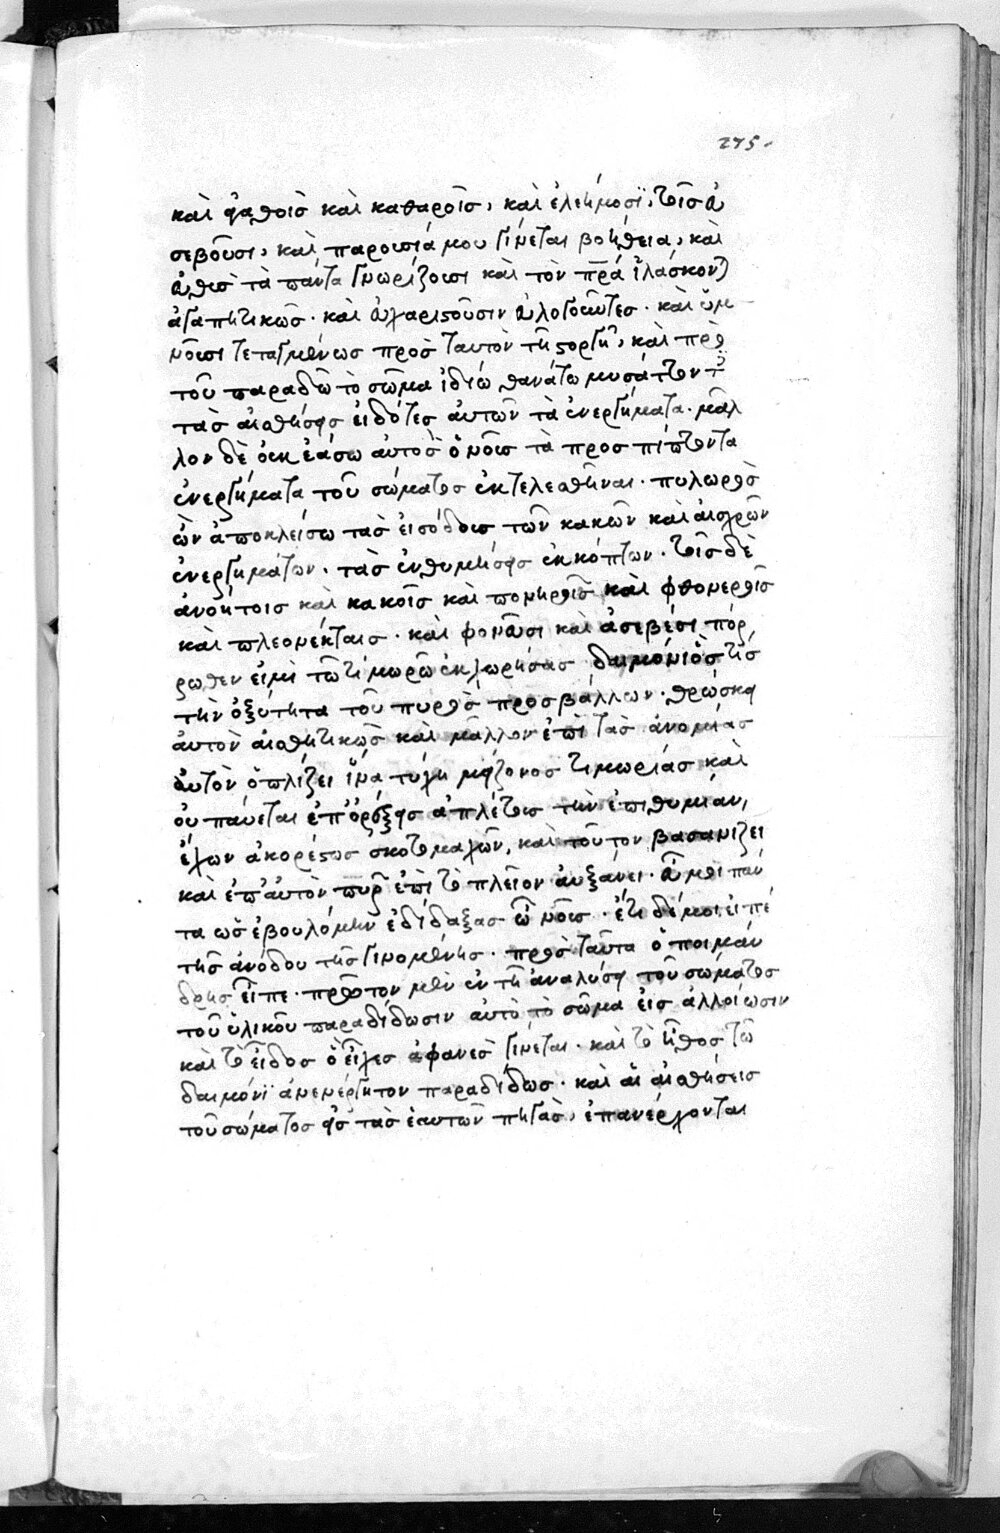 275.
καὶ ἀγαθοῖς καὶ καθαροῖς, καὶ ἐλεήμοσϊ, τοῖς εὐ
σεβοῦσι, καὶ παρουσιά μου γίνεται βοήθεια, καὶ
εὐθὺς τὰ πάντα γνωρίζουσι καὶ τὸν πρ̅α ἱλάσκονται
ἀγαπητικῶς. καὶ εὐχαριστοῦσιν εὐλογοῦντες. καὶ ὕμ
νοῦσι τεταγμένως πρὸς ταυτὸν τῆ στοργῆ, καὶ πρὸ
τοῦ παραδῶ τὸ σῶμα ἰδιώ θανάτω μυσάττονται
τὰς αἰσθήσεις εἰδότες αὐτῶν τὰ ἐνεργήματα. μᾶλ
λον δὲ οὐκ ἐάσω αὐτὸς ὁ νοῦς τὰ προσπίπτοντα
ἐνεργήματα τοῦ σώματος ἐκτελεσθῆναι. πυλωρὸς
ὢν ἀποκλείσω τὰς εἰσόδους τῶν κακῶν καὶ αἰσχρῶν
ἐνεργημάτων. τὰς ἐνθυμήσεις ἐκκόπτων. τοῖς δὲ
ἀνοήτοις καὶ κακοῖς καὶ πονηροῖς καὶ φθονεροῖς
καὶ πλεονέκταις. καὶ φονεῦσι καὶ ἀσεβέσι πόρ
ρωθεν εἰμὶ τῶ τιμωρῶ ἐκχωρήσας δαιμόνι ὅστις
τὴν ὀξύτητα τοῦ πυρὸς προσβάλλων. θρώσκει
αὐτὸν αἰσθητικῶς καὶ μᾶλλον ἐπὶ τὰς ἀνομίας
αὐτὸν ὁπλίζει ἵνα τύχη μείζονος τιμωρίας καὶ
οὐ παύεται ἐπ ὀρέξεις ἀπλέτους τὴν ἐπιθυμίαν,
ἔχων ἀκορέστως σκοτομαχῶν, καὶ τοῦτον βασανίζει
καὶ ἐπ' αὐτὸν πῦρ ἐπὶ τὸ πλεῖον αὐξάνει. εὖ μοι πάν
τα ὡς ἐβουλόμην ἐδίδαξας ὦ νοῦς. ἔτι δέ μοι εἰπὲ
τῆς ἀνόδου τῆς γινομένης. πρὸς ταῦτα ὁ ποιμάν
δρης εἶπε. πρῶτον μὲν ἐν τῆ ἀναλύσει τοῦ σώματος
τοῦ ὑλικοῦ παραδίδωσιν αὐτὸ τὸ σῶμα εἰς ἀλλοίωσιν
καὶ τὸ εἶδος ὃ εἶχες ἀφανὲς γίνεται. καὶ τὸ ἦθος τῶ
δαιμόνϊ ἀνενέργητον παραδίδως. καὶ αἱ αἰσθήσεις
τοῦ σώματος εἰς τὰς ἑαυτῶν πηγὰς, ἐπανέρχονται